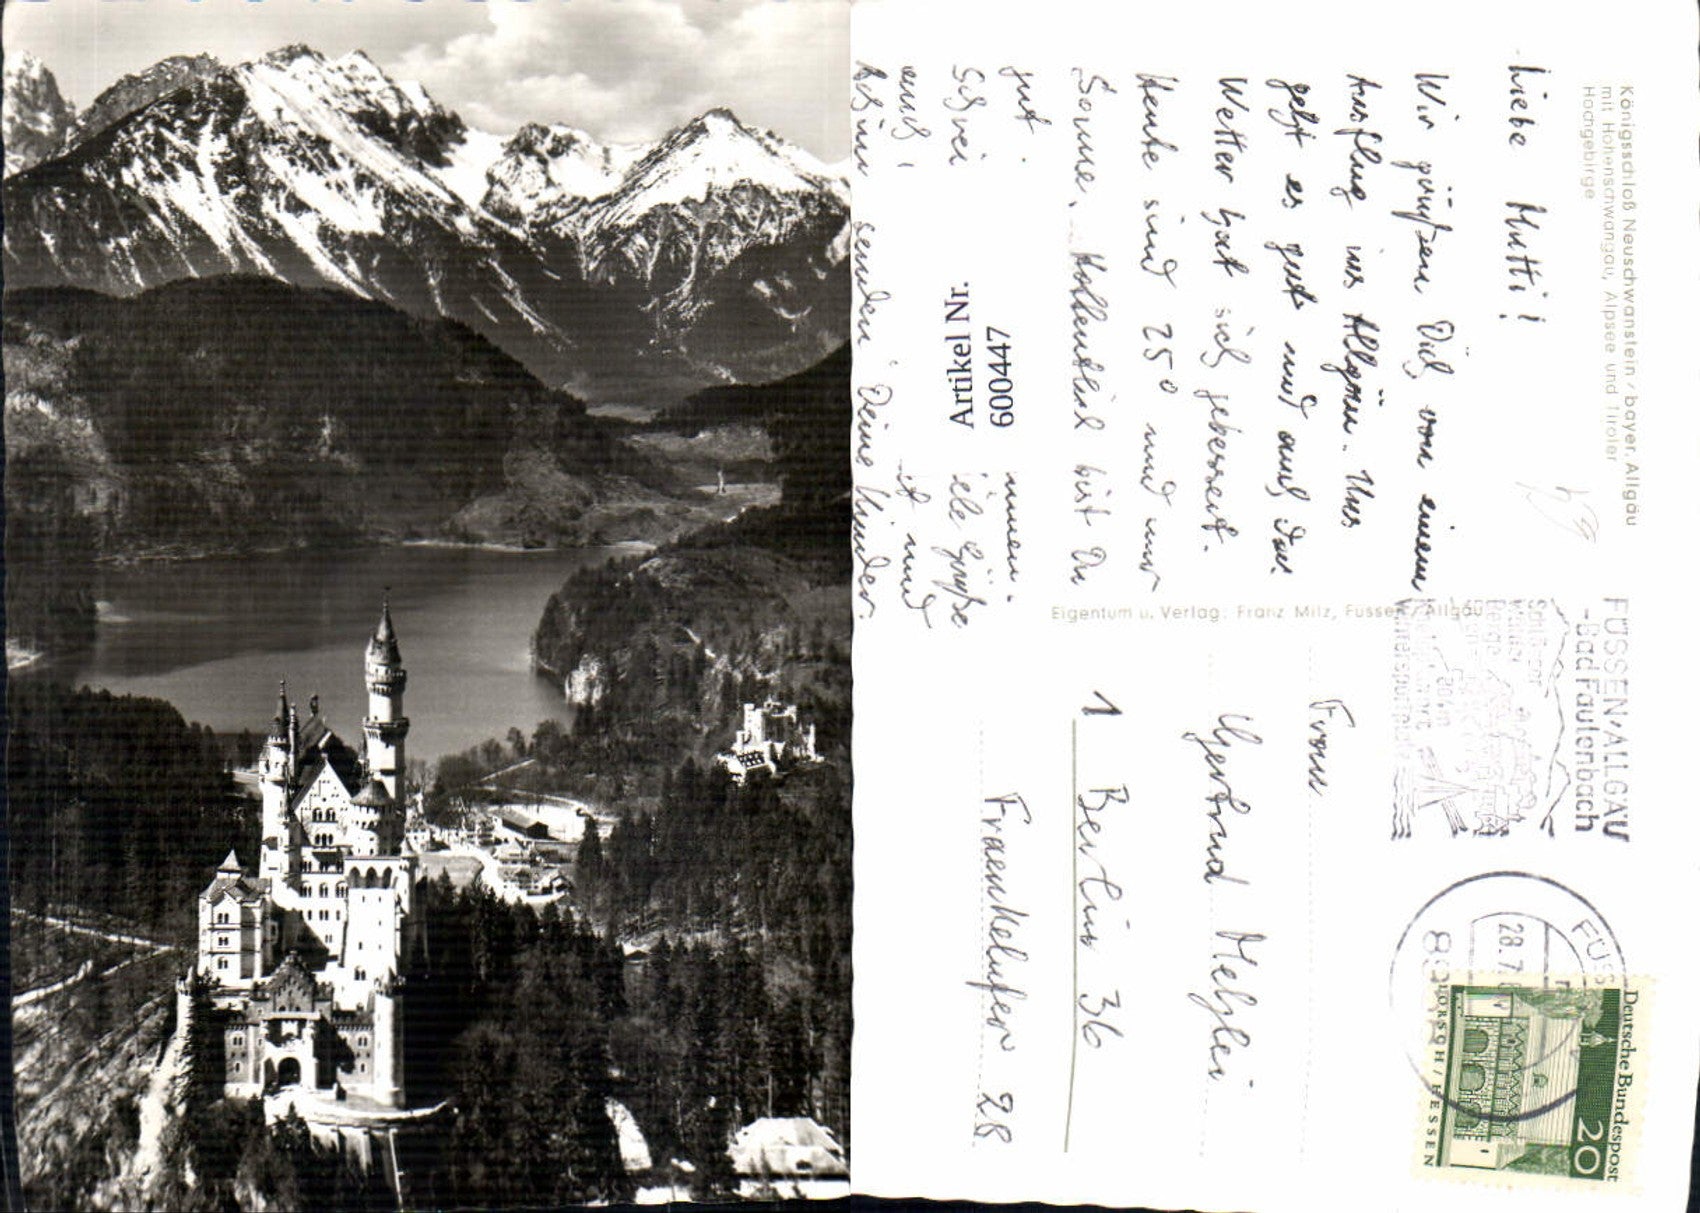 Königsschloß Neuschwanstein / bayer. Allgäu
mit Hohenschwangau, Alpsee und Tiroler
Hochgebirge
Liebe Mutti!
Wir grüßen Dich von einem
Ausflug ins Allgäu. Uns
geht es gut und auch das
Wetter hat sich gebessert.
Heute sind 25° und nur
Sonne. Hoffentlich bist Du
gut
Schrei
auch,
senden Deine Kinder.
und
Grüße
Artikel Nr.
600447
Eigentum u. Verlag: Franz Milz, Füssen / Allgäu
FÜSSEN/ALLGÄU
-Bad Faulenbach
28.7
Deutsche Bundespost
20
LORSCH / HESSEN
Frau
Gertrud Metzlei
1 Berlin 36
Fraenkelufer 28.